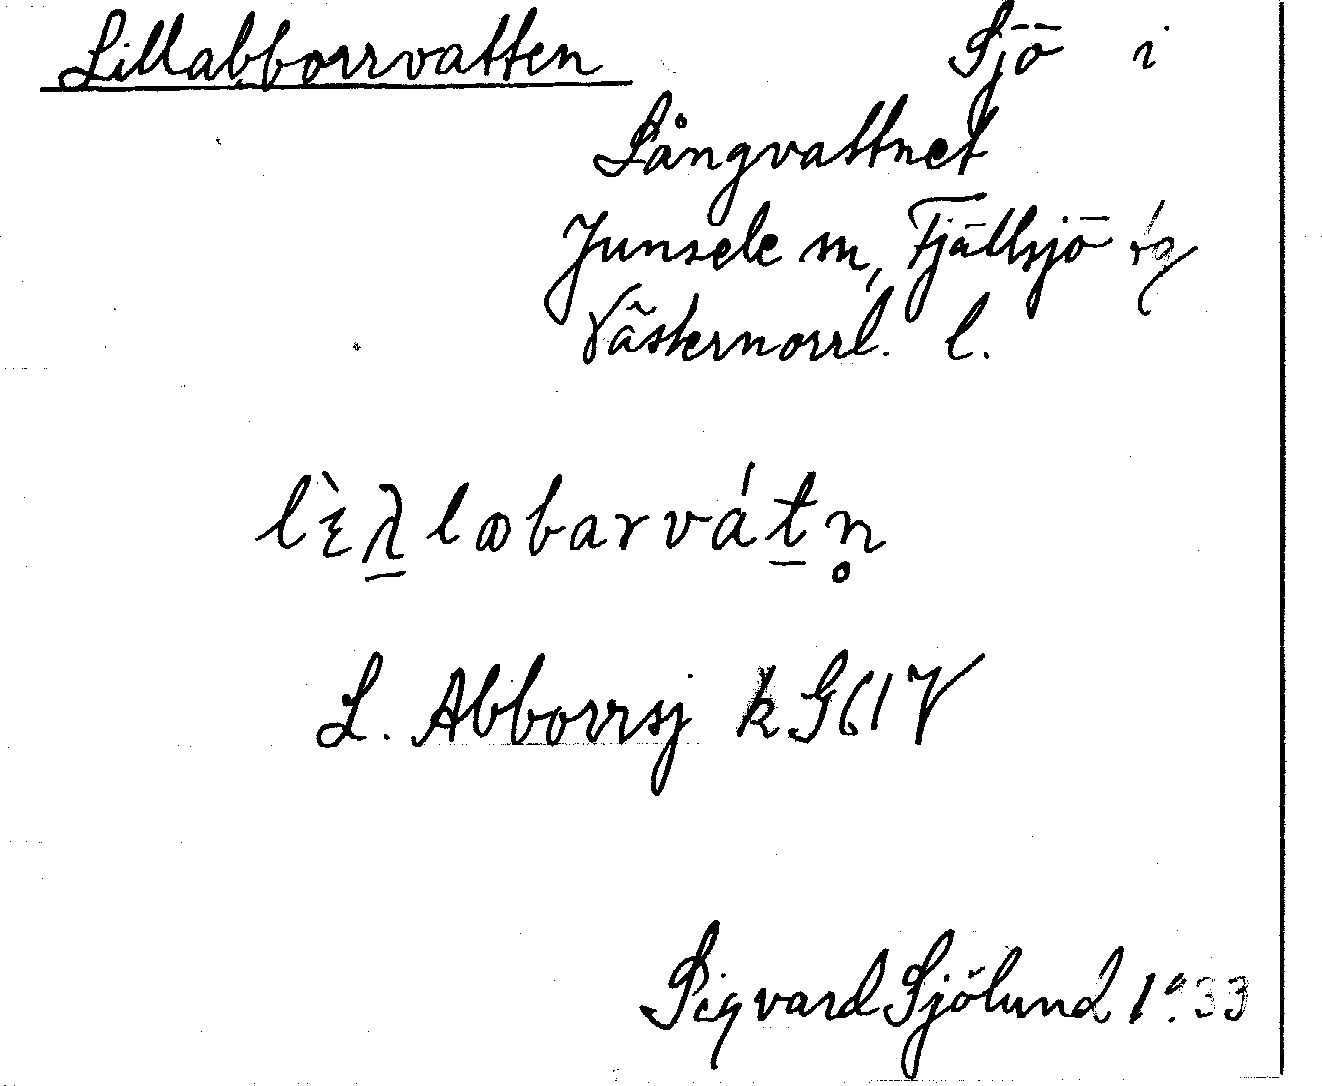 Lillabborrvatten Sjö i
Långvattnet
Junsele sn, Fjällsjö tg
Västernorrl. l.
L. Abborrsj k G 61 V
Sigvard Sjölund 1933